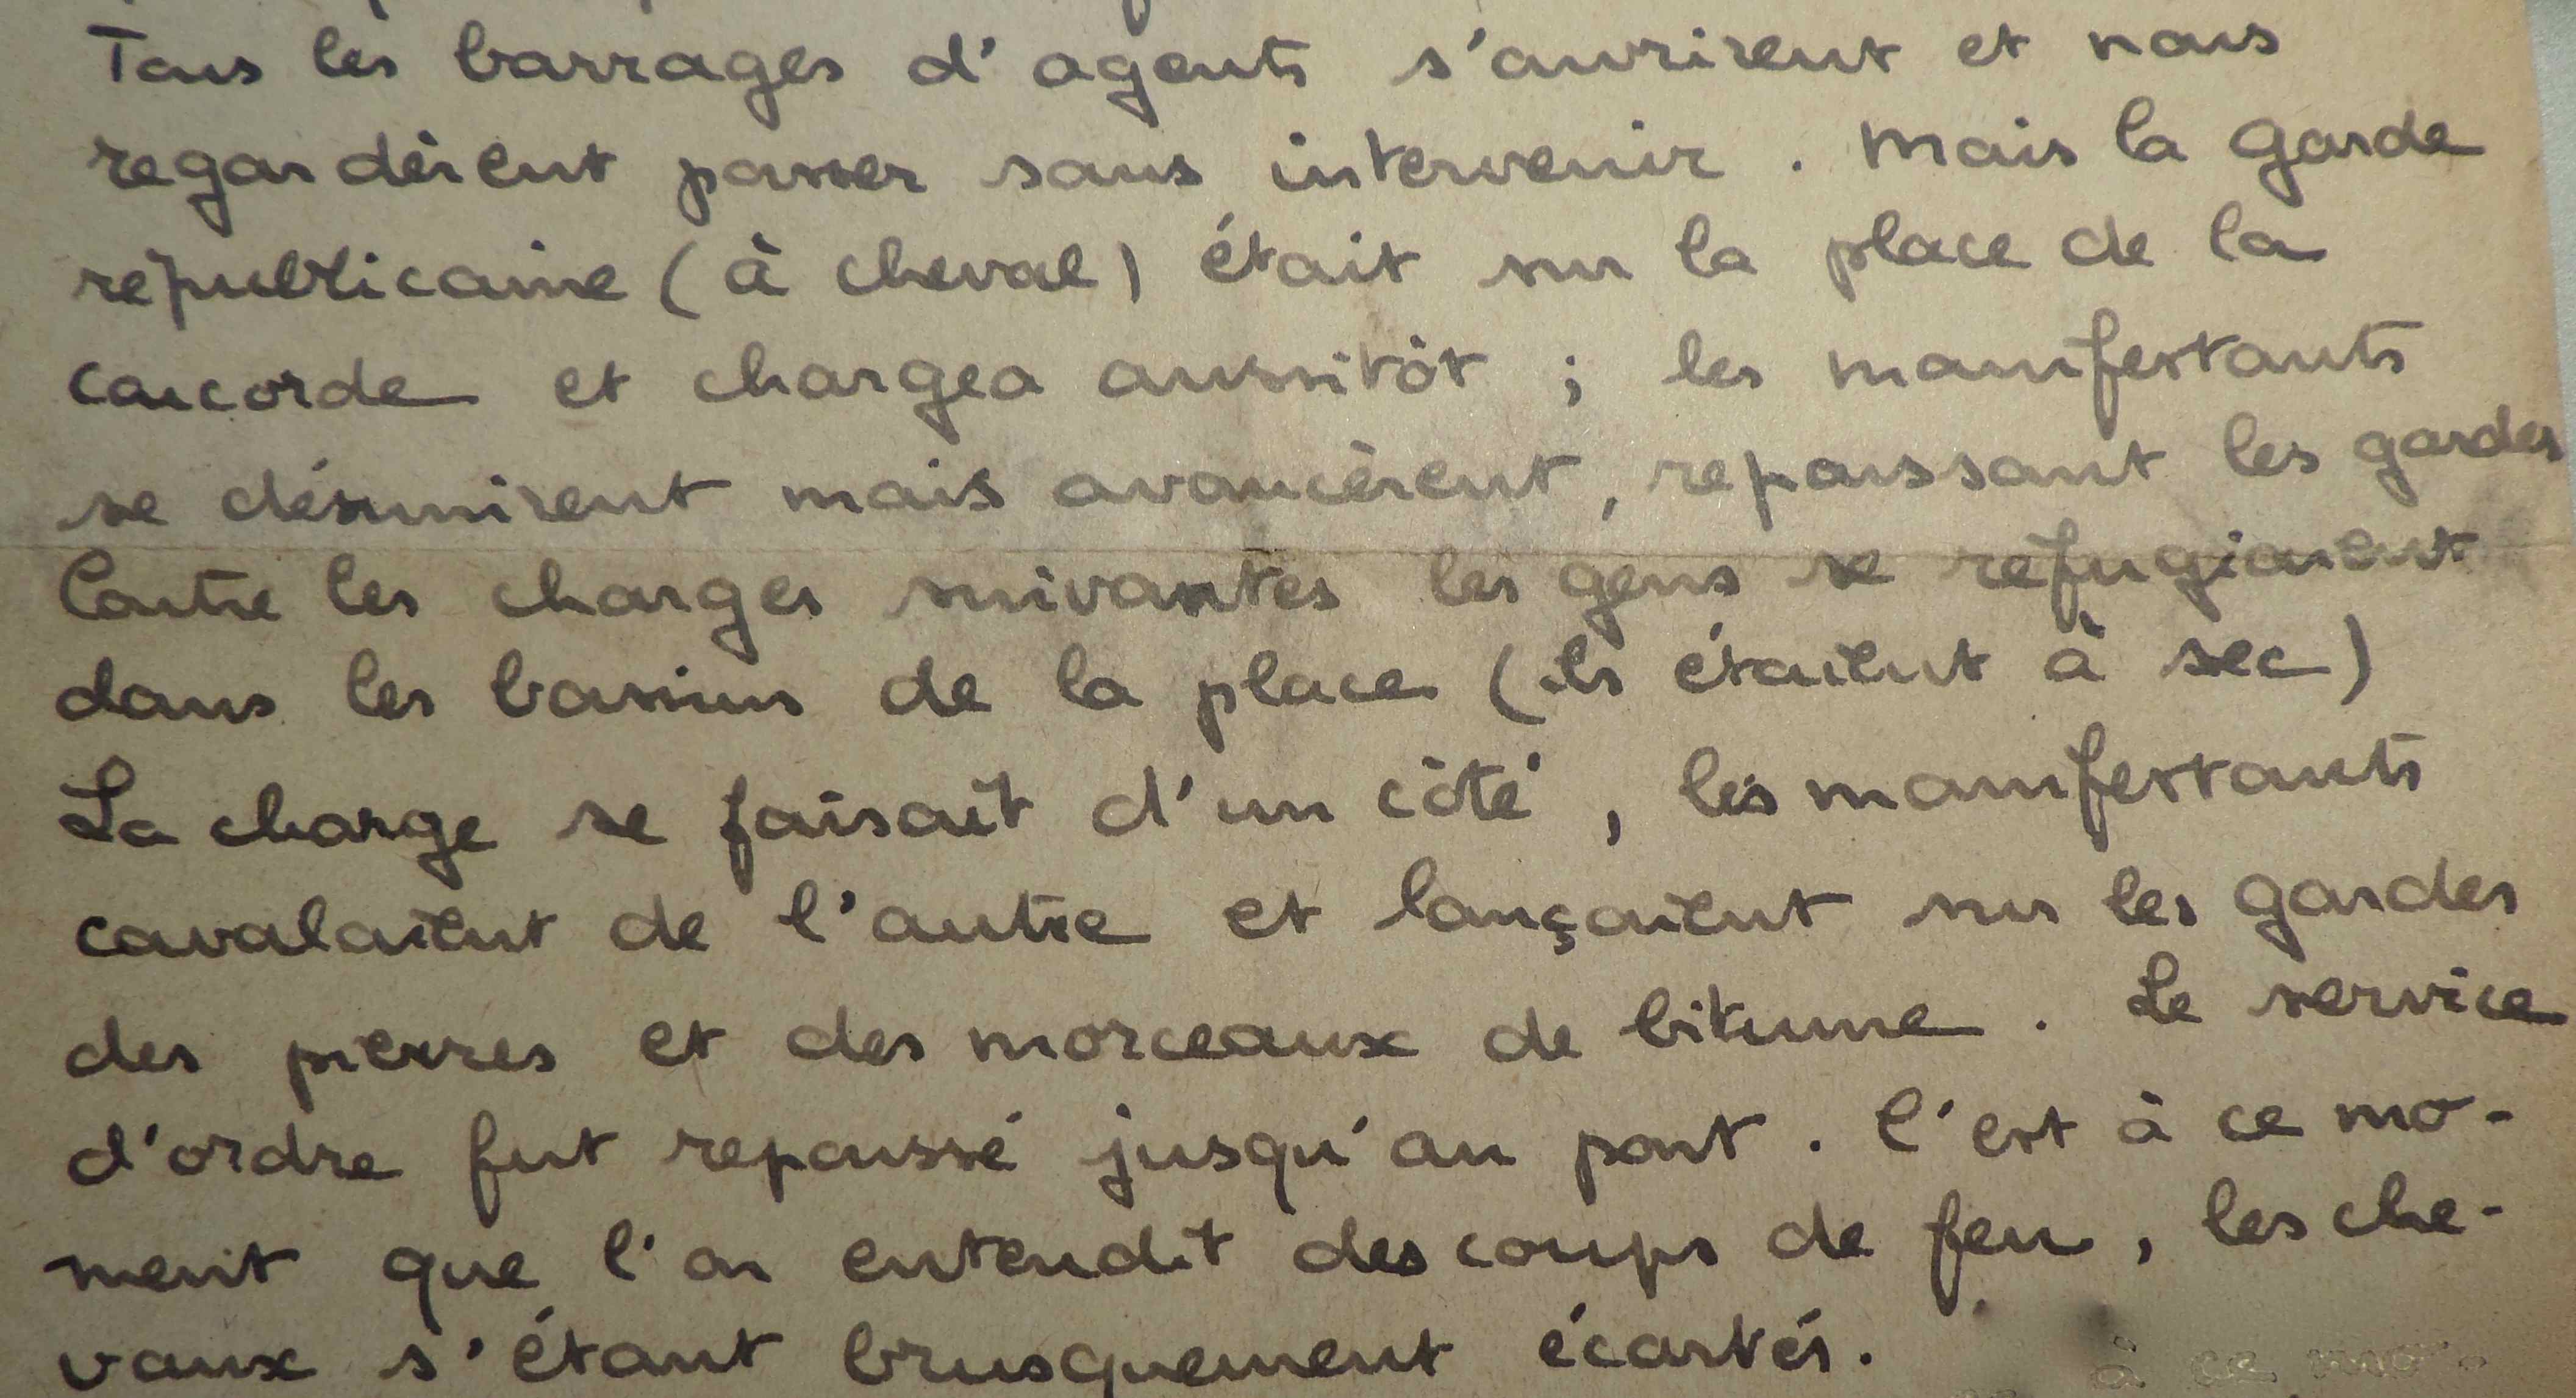 Tous les barrages d'agents s'ouvrirent et nous
regardèrent passer sans intervenir. Mais la garde
républicaine (à cheval) était sur la place de la
concorde et chargea aussitôt ; les manifestants
se désunirent mais avancèrent, repoussant les gardes
Contre les charges suivantes les gens se réfugiaient
dans les bassins de la place (ils étaient à sec)
La charge se faisait d'un côté, les manifestants
cavalaient de l'autre et lançaient sur les gardes
des pierres et des morceaux de bitume. Le service
d'ordre fut repoussé jusqu'au pont. C'est à ce mo-
ment que l'on entendit des coups de feu, les che-
vaux s'étant brusquement écartés.
à ce mo-